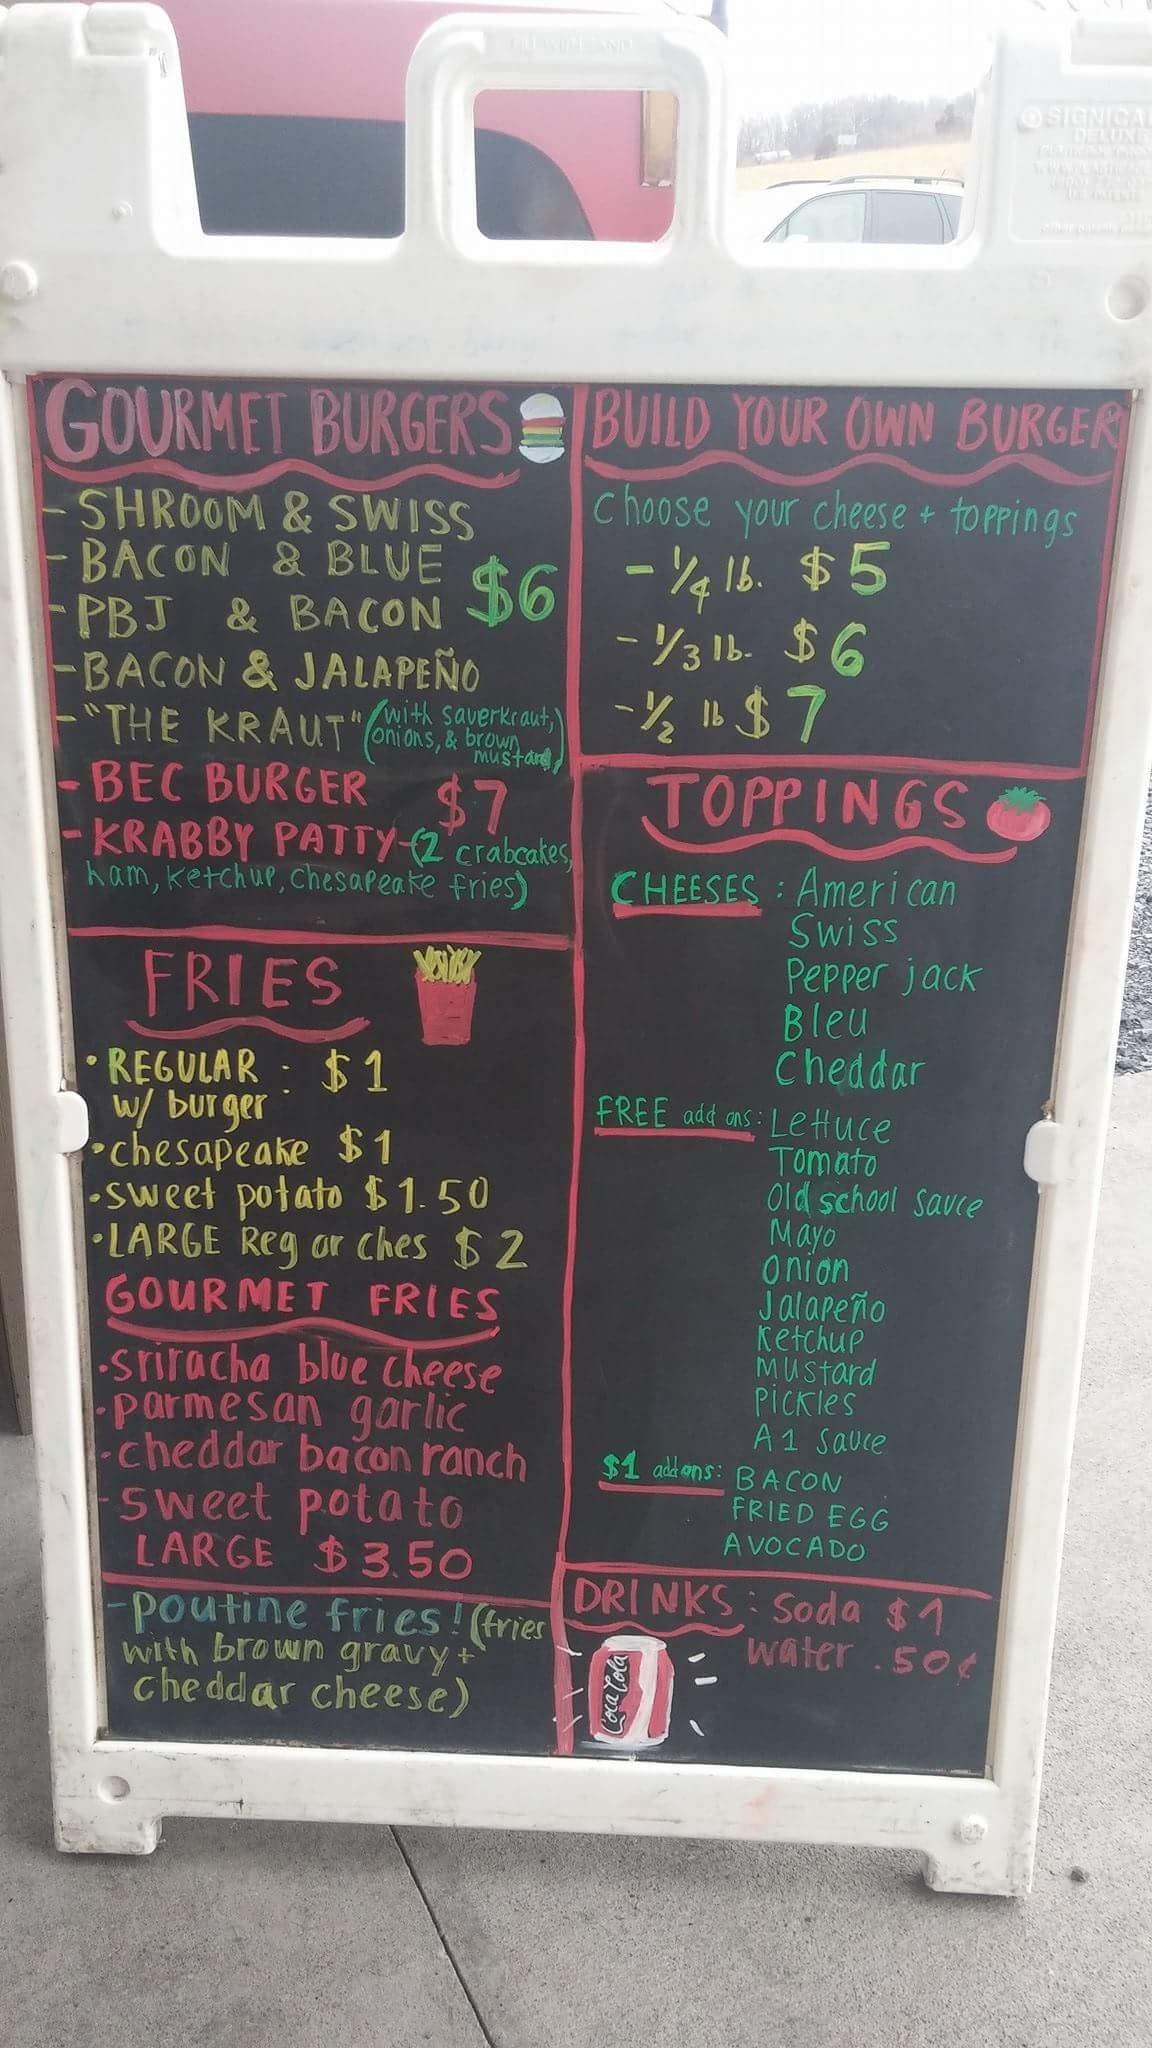 GOURMET BURGERS
- SHROOM & SWISS
- BACON & BLUE
$6
- PBJ & BACON
- BACON & JALAPEÑO
- "THE KRAUT" (with sauerkraut,
onions, & brown
mustard)
- BEC BURGER $7
- KRABBY PATTY-(2 crabcakes,
ham, ketchup, chesapeake fries)
FRIES
• REGULAR : $1
w/ burger
• chesapeake $1
• sweet potato $1.50
• LARGE Reg or ches $2
GOURMET FRIES
• sriracha blue cheese
• parmesan garlic
• cheddar bacon ranch
- sweet potato
LARGE $3.50
- poutine fries! (fries
with brown gravy +
cheddar cheese)
BUILD YOUR OWN BURGER
Choose your cheese + toppings
- 1/4 lb. $5
- 1/3 lb. $6
- 1/2 lb $7
TOPPINGS
CHEESES : American
Swiss
Pepper jack
Bleu
Cheddar
FREE add ons: Lettuce
Tomato
Old school sauce
Mayo
Onion
Jalapeño
Ketchup
Mustard
Pickles
A1 sauce
$1 add ons: BACON
FRIED EGG
AVOCADO
DRINKS : Soda $1
water .50¢
Coca Cola
SIGNICA
DELUXE